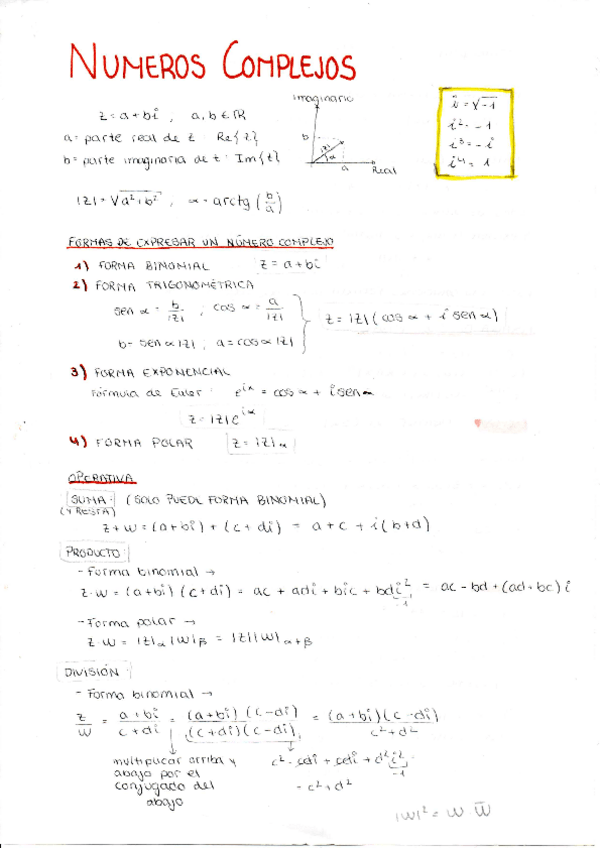 NUMEROS COMPLEJOS
z = a + bi , a, b ∈ ℝ
a = parte real de z Re{z}
b = parte imaginaria de z : Im{z}
imaginario
b
|z|
α
a
Real
i = √-1
i² = -1
i³ = -i
i⁴ = 1
|z| = √a² + b² , α = arctg (b/a)
FORMAS DE EXPRESAR UN NÚMERO COMPLEJO
1) FORMA BINOMIAL z = a + bi
2) FORMA TRIGONOMÉTRICA
sen α = b/|z| ; cos α = a/|z|
b = sen α |z| ; a = cos α |z|
z = |z| (cos α + i sen α)
3) FORMA EXPONENCIAL
Fórmula de Euler : e^iα = cos α + i sen α
z = |z| e^iα
4) FORMA POLAR z = |z|α
OPERATIVA
SUMA : (SOLO PUEDE FORMA BINOMIAL)
(Y RESTA)
z + w = (a + bi) + (c + di) = a + c + i(b + d)
PRODUCTO :
- Forma binomial →
z · w = (a + bi) (c + di) = ac + adi + bic + bdi² = ac - bd + (ad + bc) i
-1
- Forma polar →
z · w = |z|α |w|β = |z||w| α+β
DIVISIÓN :
- Forma binomial →
z/w = a + bi / c + di = (a + bi) (c - di) / (c + di)(c - di) = (a + bi)(c - di) / c² + d²
multiplicar arriba y
abajo por el
conjugado del
abajo
c² - cdi + cdi + d² i²
-1
= c² + d²
|w|² = w · w̄